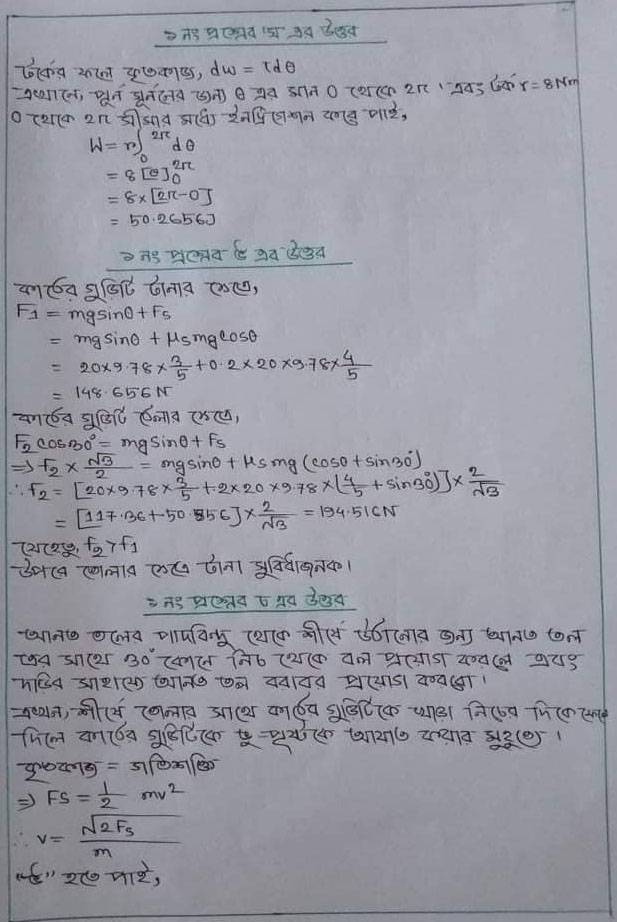 ১নং প্রশ্নের ঘ এর উত্তর
টর্কের ফলে কৃতকাজ, dw = τdθ
এখানে, পূর্ন ঘূর্নণের জন্য θ এর মান 0 থেকে 2π । এবং টর্ক τ = 8Nm
0 থেকে 2π সীমার মধ্যে ইনট্রিগ্রেশন করে পাই,
W = τ∫₀^2π dθ
= 8 [θ]₀^2π
= 8 × [2π-0]
= 50.2656J
১নং প্রশ্নের ঙ এর উত্তর
কাঠের গুড়িটি টানার ক্ষেত্রে,
F1 = mgsinθ + Fs
= mgsinθ + μsmgcosθ
= 20×9.78×3/5 + 0.2×20×9.78×4/5
= 148.656N
কাঠের গুড়িটি ঠেলার ক্ষেত্রে,
F₂cos30° = mgsinθ + Fs
⇒ F₂ × √3/2 = mgsinθ + μsmg (cosθ + sin30°)
∴ F₂ = [20×9.78×3/5 + .2×20×9.78×(4/5 + sin30°)] × 2/√3
= [117.36 + 50.856] × 2/√3 = 194.516N
যেহেতু, F₂ > F₁
উপরে তোলার ক্ষেত্রে টানা সুবিধাজনক।
১নং প্রশ্নের চ এর উত্তর
আনত তলের পাদবিন্দু থেকে শীর্ষে উঠানোর জন্য আনত তল
এর সাথে 30° কোনে নিচ থেকে বল প্রয়োগ করলে এবং
দড়ির সাহায্যে আনত তল বরাবর প্রয়োগ করবো।
এখন, শীর্ষে তোলার সাথে কাঠের গুড়িটিকে খাড়া নিচের দিকে ফেলে
দিলে কাঠের গুড়িটিকে ভূ-পৃষ্ঠকে আঘাত করার মুহূর্তে।
কৃতকাজ = গতিশক্তি
⇒ FS = 1/2 mv²
∴ v = √2Fs/m
"ঙ" হতে পাই,